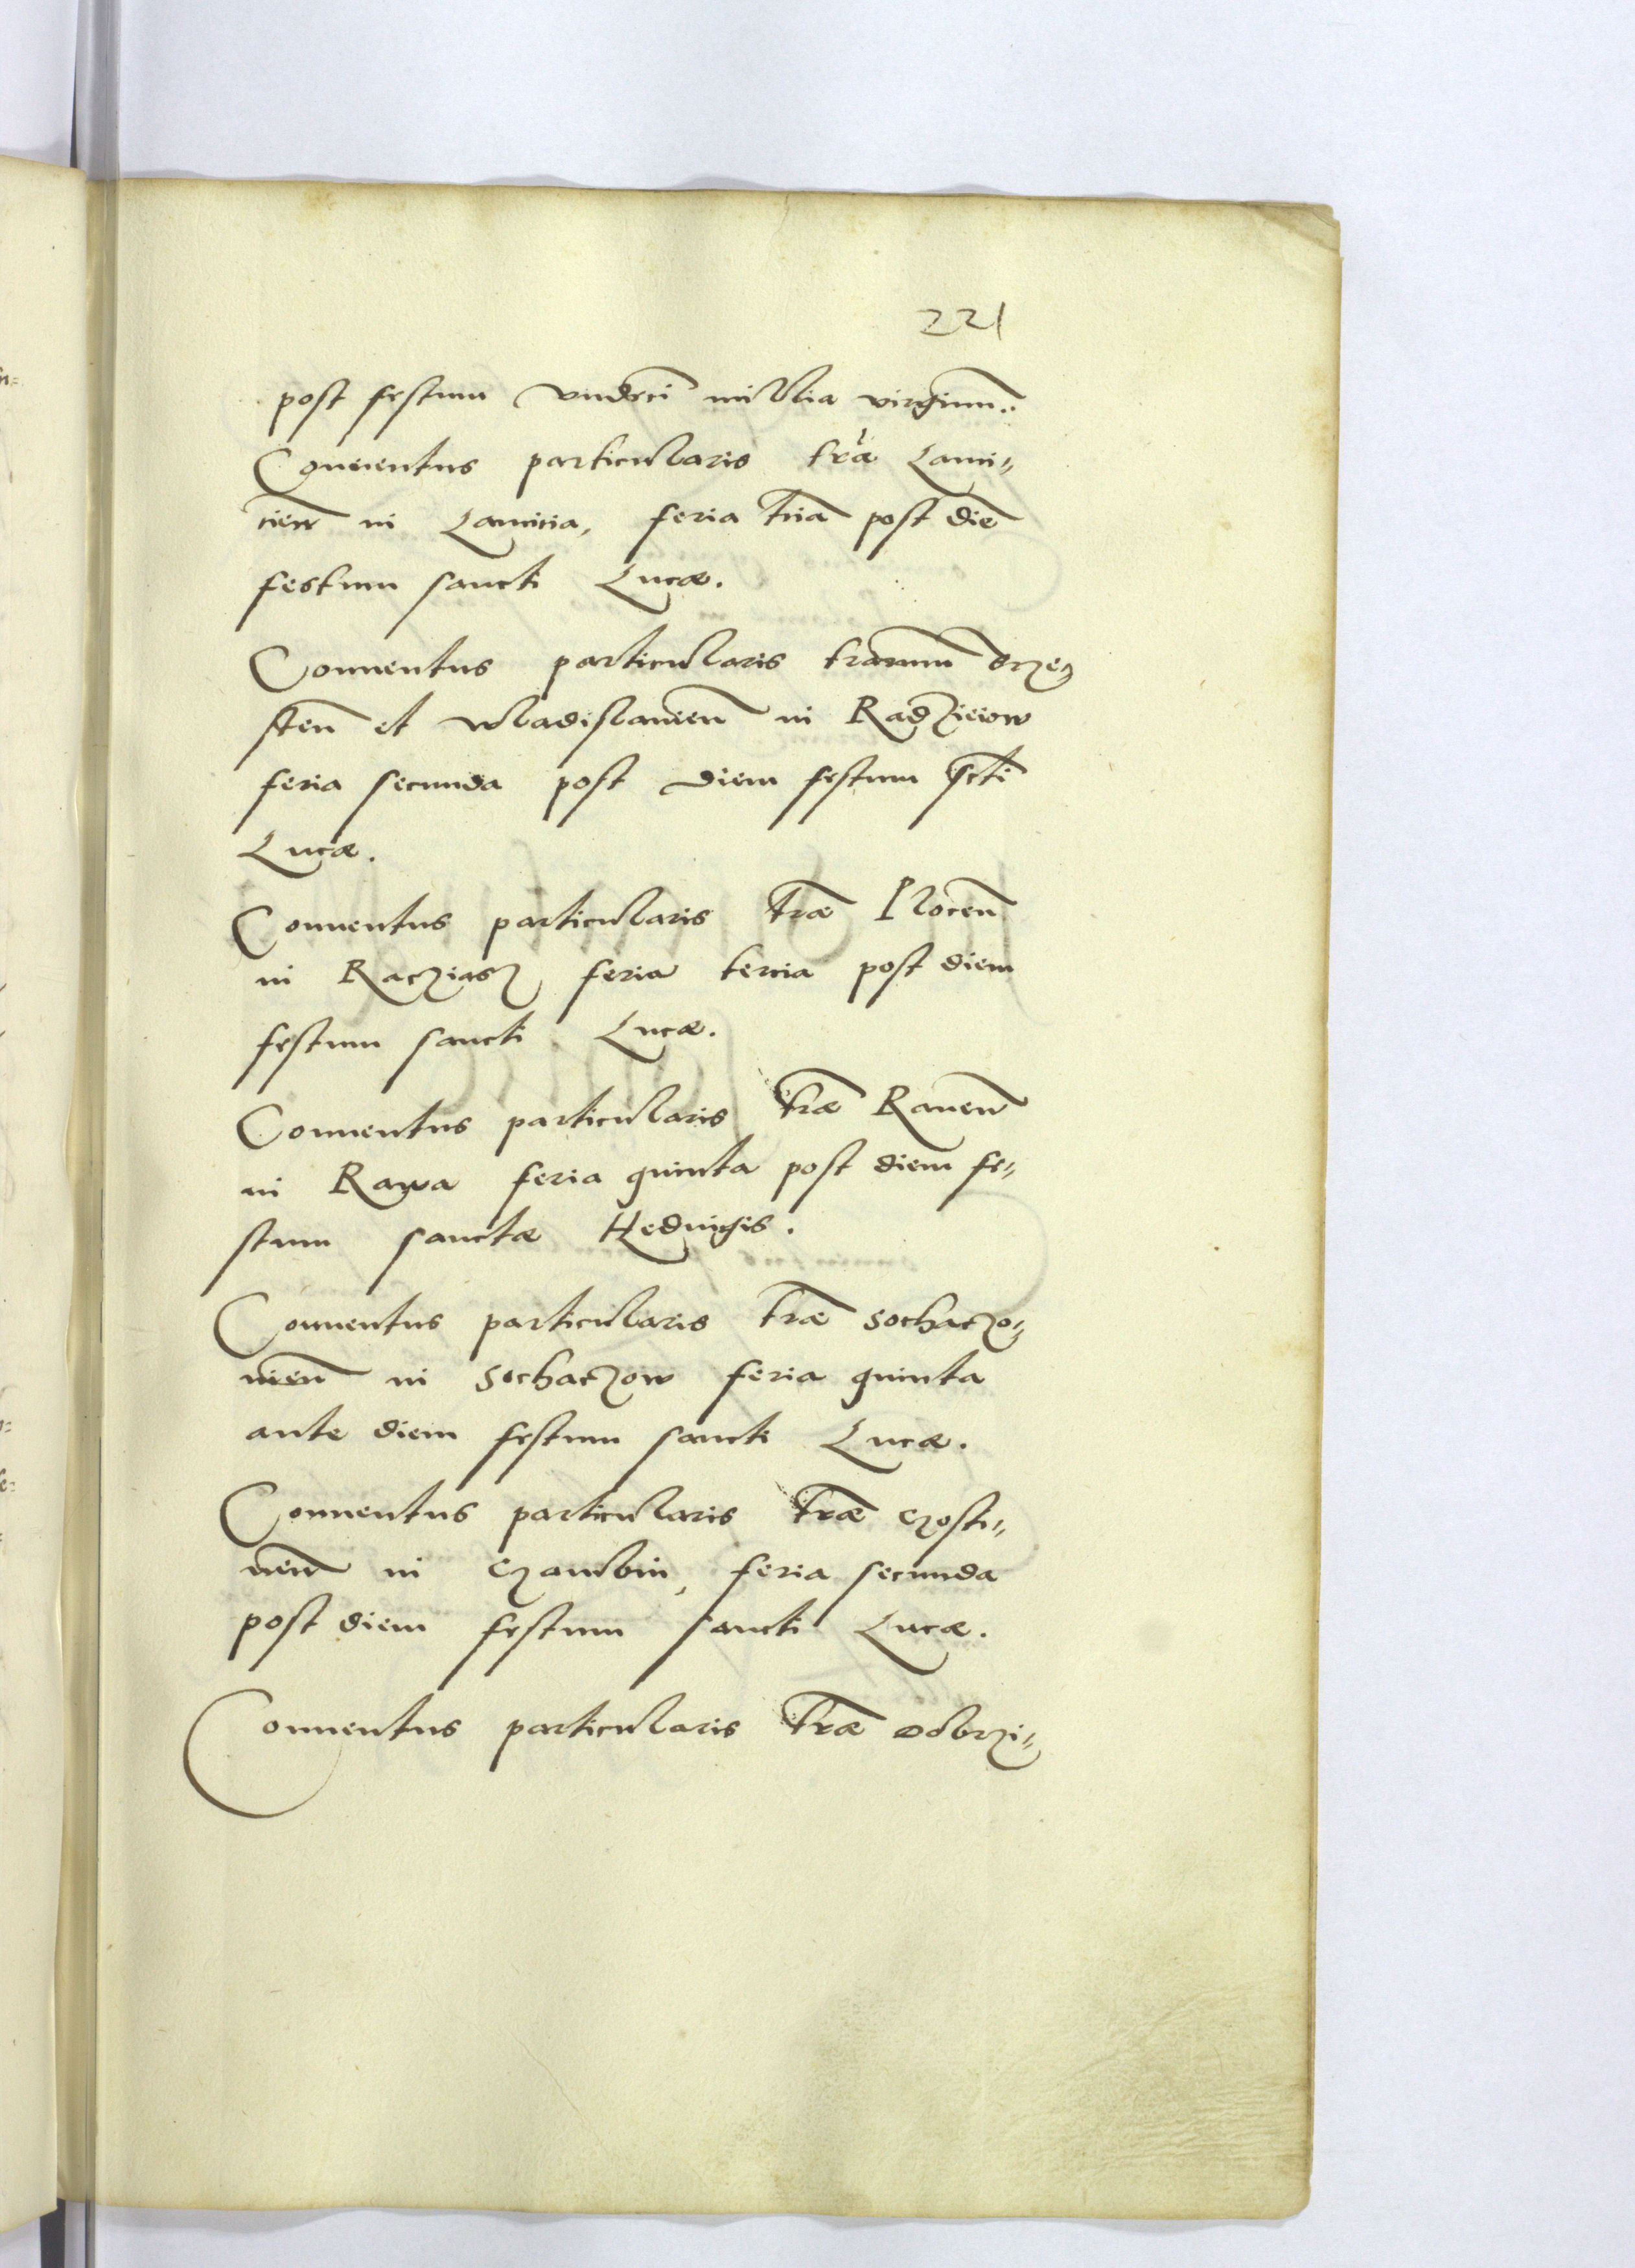 221
post festum vndeci millia virginum.
Conuentus particularis tra Lanci„
cien in Lancicia, feria tria post die
festum sancti Lucæ.
Conuentus particularis trarum brze„
sten et wladislauien in Radzieiow
feria secunda post diem festum scti
Lucæ.
Conuentus particularis træ Plocen
in Racziasz feria tercia post diem
festum sancti Lucæ.
Conuentus particularis træ Rauen
in Rawa feria quinta post diem fe„
stum sanctæ Heduigis.
Conuentus particularis træ sochaczo„
uien in sochaczow feria quinta
ante diem festum sancti Lucæ.
Conuentus particularis træ gosti„
nen in gambin, feria secunda
post diem festum sancti Lucæ.
Conuentus particularis træ dobrzi„